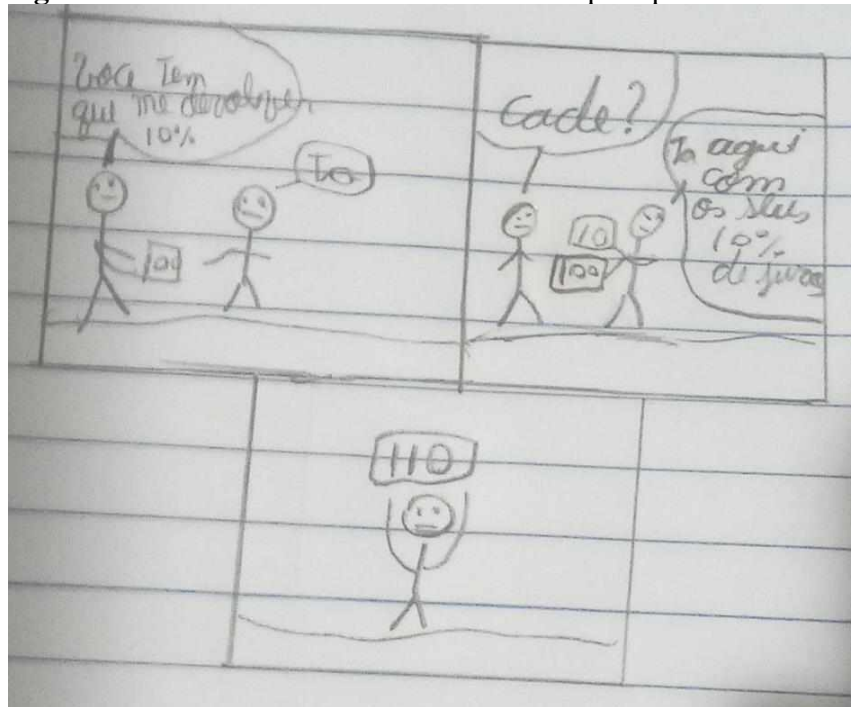 Voce Tem
que me devolver
10%
100
Ta
Cade?
Ta aqui
com
os seus
10%
de juros
10
100
110